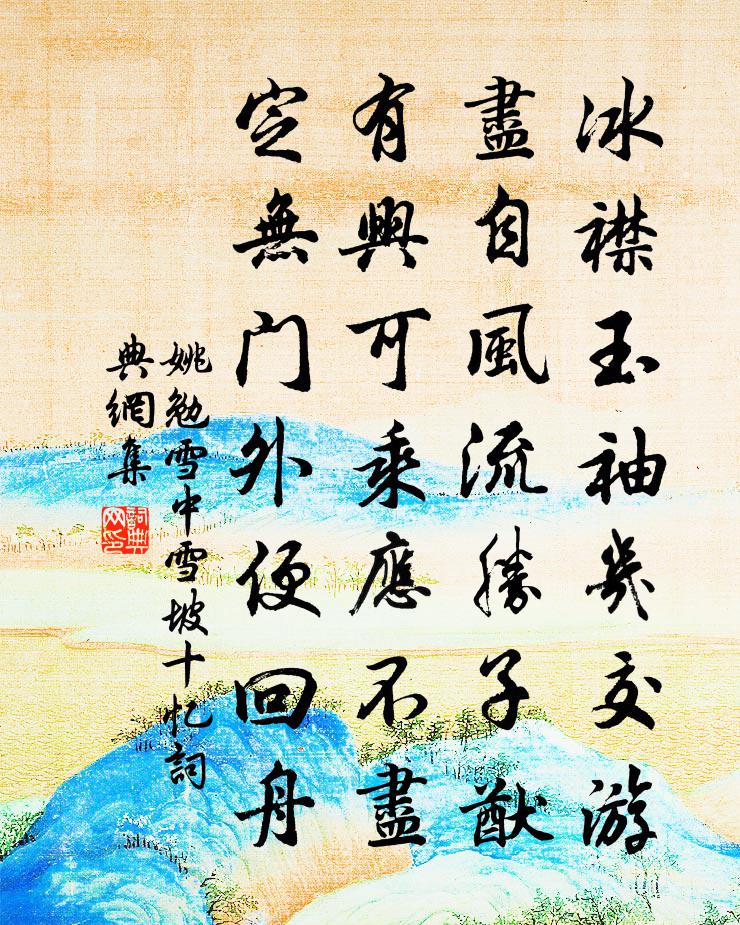 冰襟玉袖幾交游
盡自風流勝子猷
有興可乘應不盡
定無门外便回舟
姚勉雪中雪坡十忆詞
典網集
詞典网印